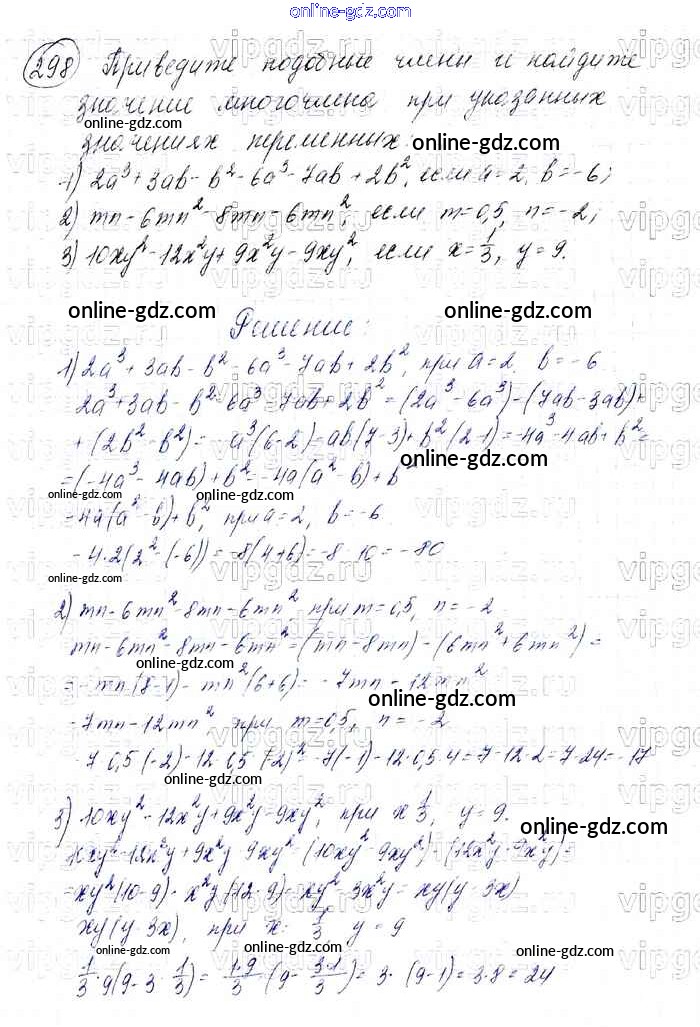 online-gdz.com
298 Приведите подобные члены и найдите
значение многочлена при указанных
значениях переменных:
online-gdz.com
1) 2a³+3ab-b²-6a³-7ab+2b², если a=2, b=-6;
2) mn-6mn²-8mn-6mn², если m=0,5, n=-2;
3) 10xy²-12x²y+9x²y-9xy², если x=1/3, y=9.
online-gdz.com online-gdz.com
Решение:
1) 2a³+3ab-b²-6a³-7ab+2b², при a=2, b=-6
2a³+3ab-b²-6a³-7ab+2b²=(2a³-6a³)-(7ab-3ab)+
+(2b²-b²)=-a³(6-2)=ab(7-3)+b²(2-1)=-4a³-4ab+b²=
online-gdz.com
=(-4a³-4ab)+b²=-4a(a²-b)+b²
online-gdz.com online-gdz.com
=4a(a²-b)+b², при a=2, b=-6
-4·2(2²-(-6))=-8(4+6)=-8·10=-80
online-gdz.com
2) mn-6mn²-8mn-6mn², при m=0,5, n=-2
online-gdz.com
mn-6mn²-8mn-6mn²=(mn-8mn)-(6mn²+6mn²)=
online-gdz.com
=-mn(8-1)-mn²(6+6)=-7mn-12mn²
online-gdz.com
-7mn-12mn², при m=0,5, n=-2
online-gdz.com
-7·0,5(-2)-12·0,5(-2)²=-7(-1)-12·0,5·4=7-12·2=7-24=-17
online-gdz.com
3) 10xy²-12x²y+9x²y-9xy², при x 1/3, y=9.
online-gdz.com
10xy²-12x²y+9x²y-9xy²=(10xy²-9xy²)-(12x²y-9x²y)=
=xy²(10-9)-x²y(12-9)=xy²-3x²y=xy(y-3x)
xy(y-3x), при x=1/3 y=9
online-gdz.com online-gdz.com
1/3·9(9-3·1/3)=1·9/3·(9-3·1/3)=3·(9-1)=3·8=24